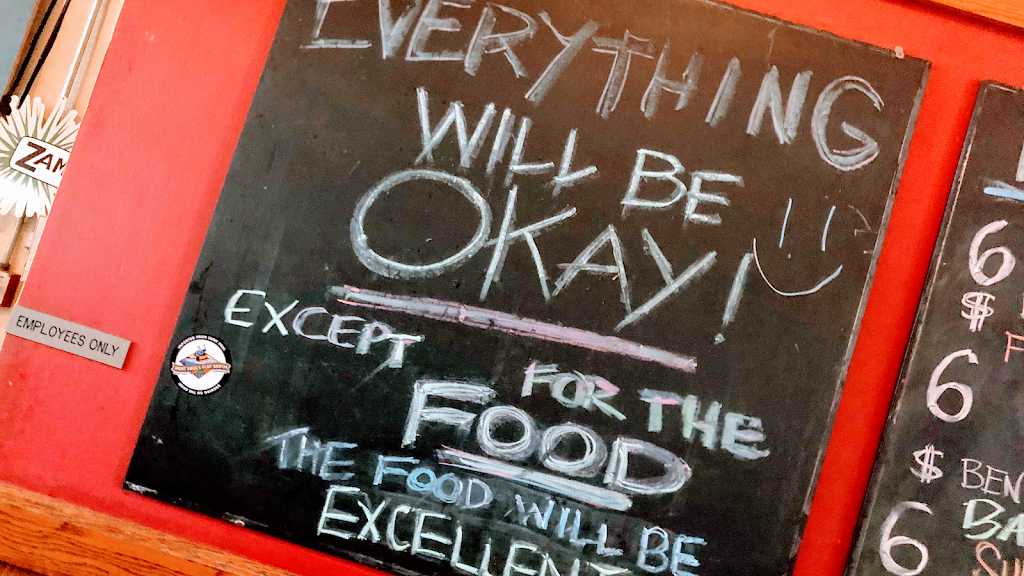 EVERYTHING
WILL BE
OKAY!
EXCEPT
FOR THE
FOOD
THE FOOD WILL BE
EXCELLENT
ZAM
EMPLOYEES ONLY
6
$
6
$ BEN
BA
6 SU